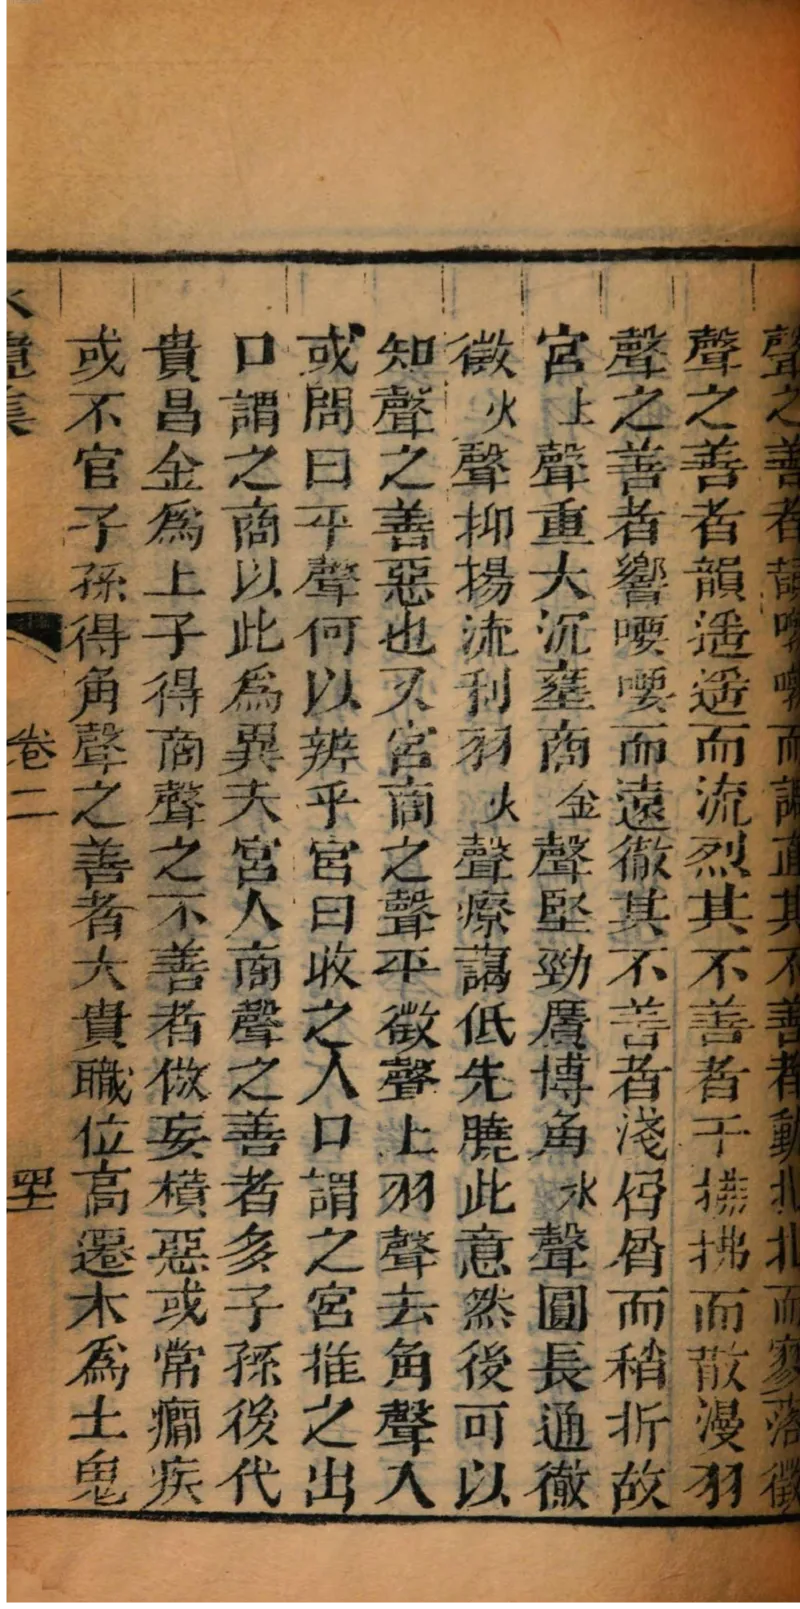 聲之善者韻嚶嚶而調直其不善者動扎扎而寥落徵
聲之善者韻遥遥而流烈其不善者干撫拂而散漫羽
聲之善者響嘤嘤而遠徹其不善者淺㑊㑊而稍折故
宮土聲重大沉壅商金聲堅勁廣博角木聲圓長通徹
徵火聲抑揚流利羽水聲療藹低先曉此意然後可以
知聲之善惡也又宮商之聲平徵聲上羽聲去角聲入
或問曰平聲何以辨乎宮曰收之入口謂之宮推之出
口謂之商以此為異夫宮人商聲之善者多子孫後代
貴昌金為上子得商聲之不善者做妄橫惡或常癇疾
或不官子孫得角聲之善者大貴職位高遷木為土鬼
卷二